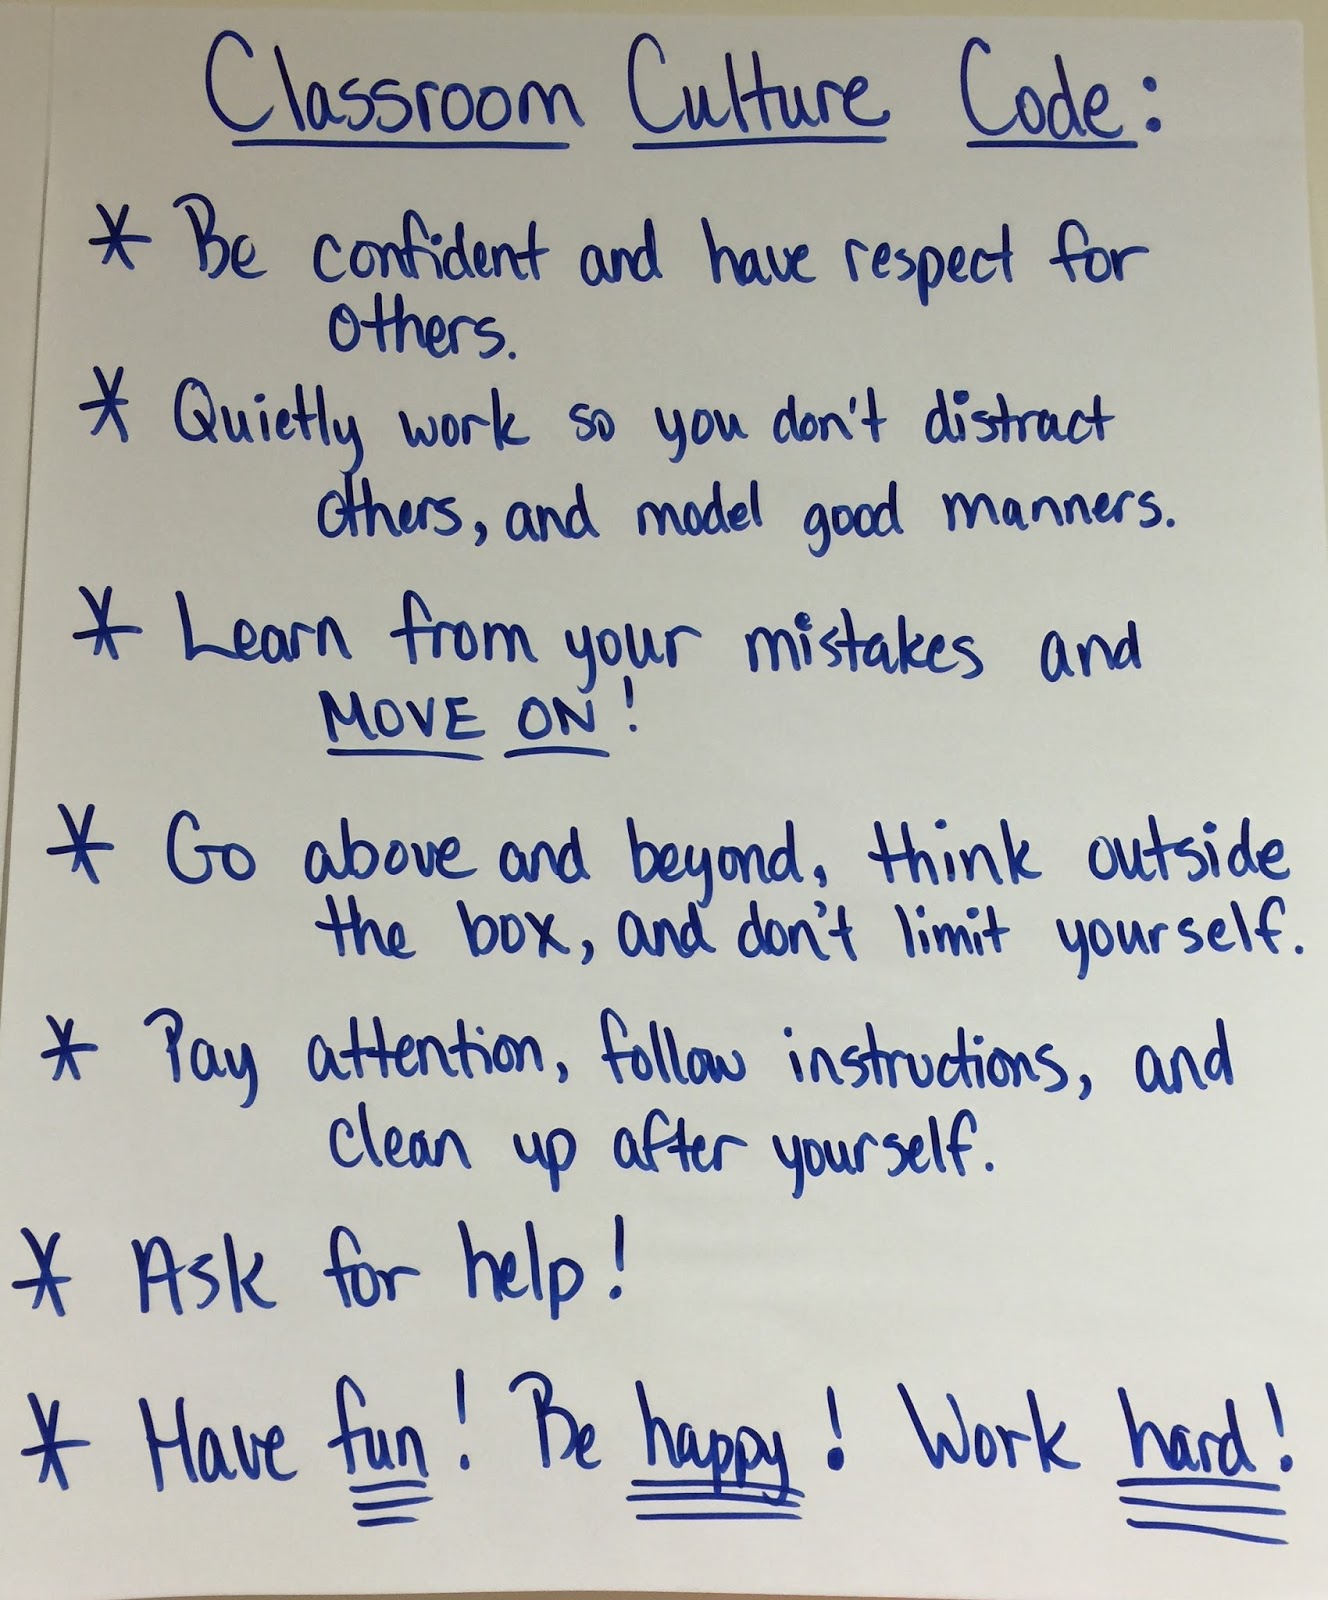 Classroom Culture Code:
* Be confident and have respect for
others.
* Quietly work so you don't distract
others, and model good manners.
* Learn from your mistakes and
MOVE ON!
* Go above and beyond, think outside
the box, and don't limit yourself.
* Pay attention, follow instructions, and
clean up after yourself.
* Ask for help!
* Have fun! Be happy! Work hard!